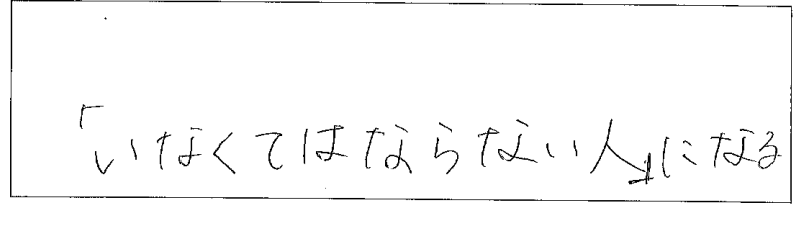 「いなくてはならない人」になる